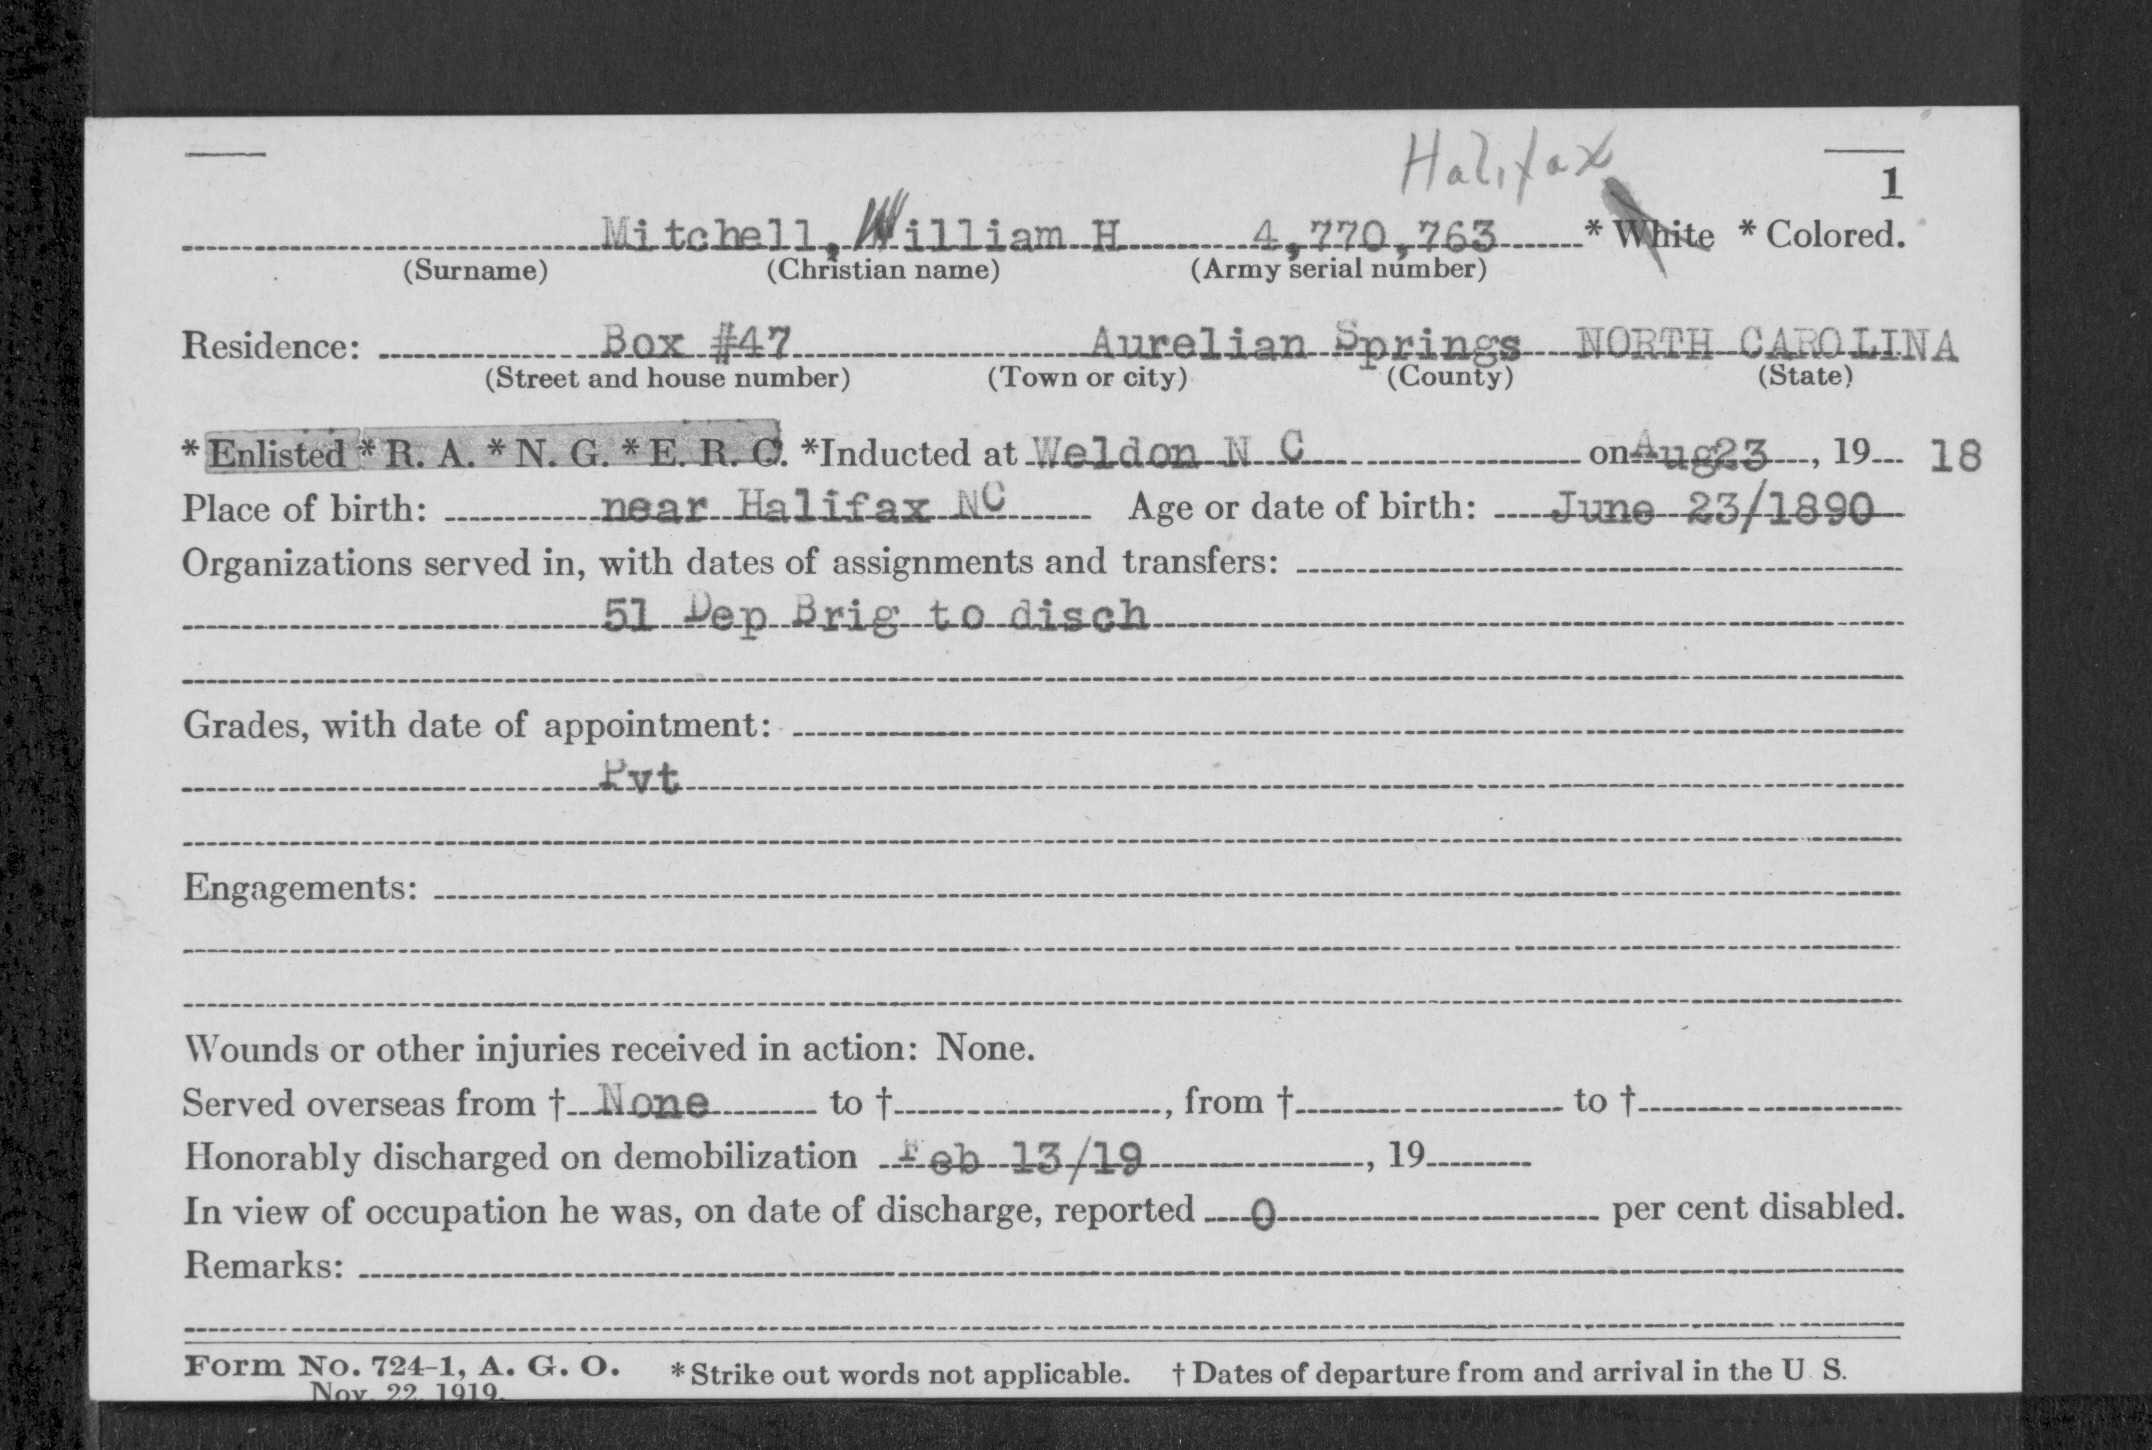 Halifax
1
Mitchell, William H 4,770,763 * White * Colored.
(Surname) (Christian name) (Army serial number)
Residence: Box #47 Aurelian Springs NORTH CAROLINA
(Street and house number) (Town or city) (County) (State)
* Enlisted * R. A. * N. G. * E. R. C. *Inducted at Weldon N C on Aug 23, 19 18
Place of birth: near Halifax NC Age or date of birth: June 23/1890
Organizations served in, with dates of assignments and transfers:
51 Dep Brig to disch
Grades, with date of appointment:
Pvt
Engagements:
Wounds or other injuries received in action: None.
Served overseas from † None to †, from † to †
Honorably discharged on demobilization Feb 13/19, 19
In view of occupation he was, on date of discharge, reported 0 per cent disabled.
Remarks:
Form No. 724-1, A. G. O. * Strike out words not applicable. † Dates of departure from and arrival in the U. S.
Nov. 22, 1919.